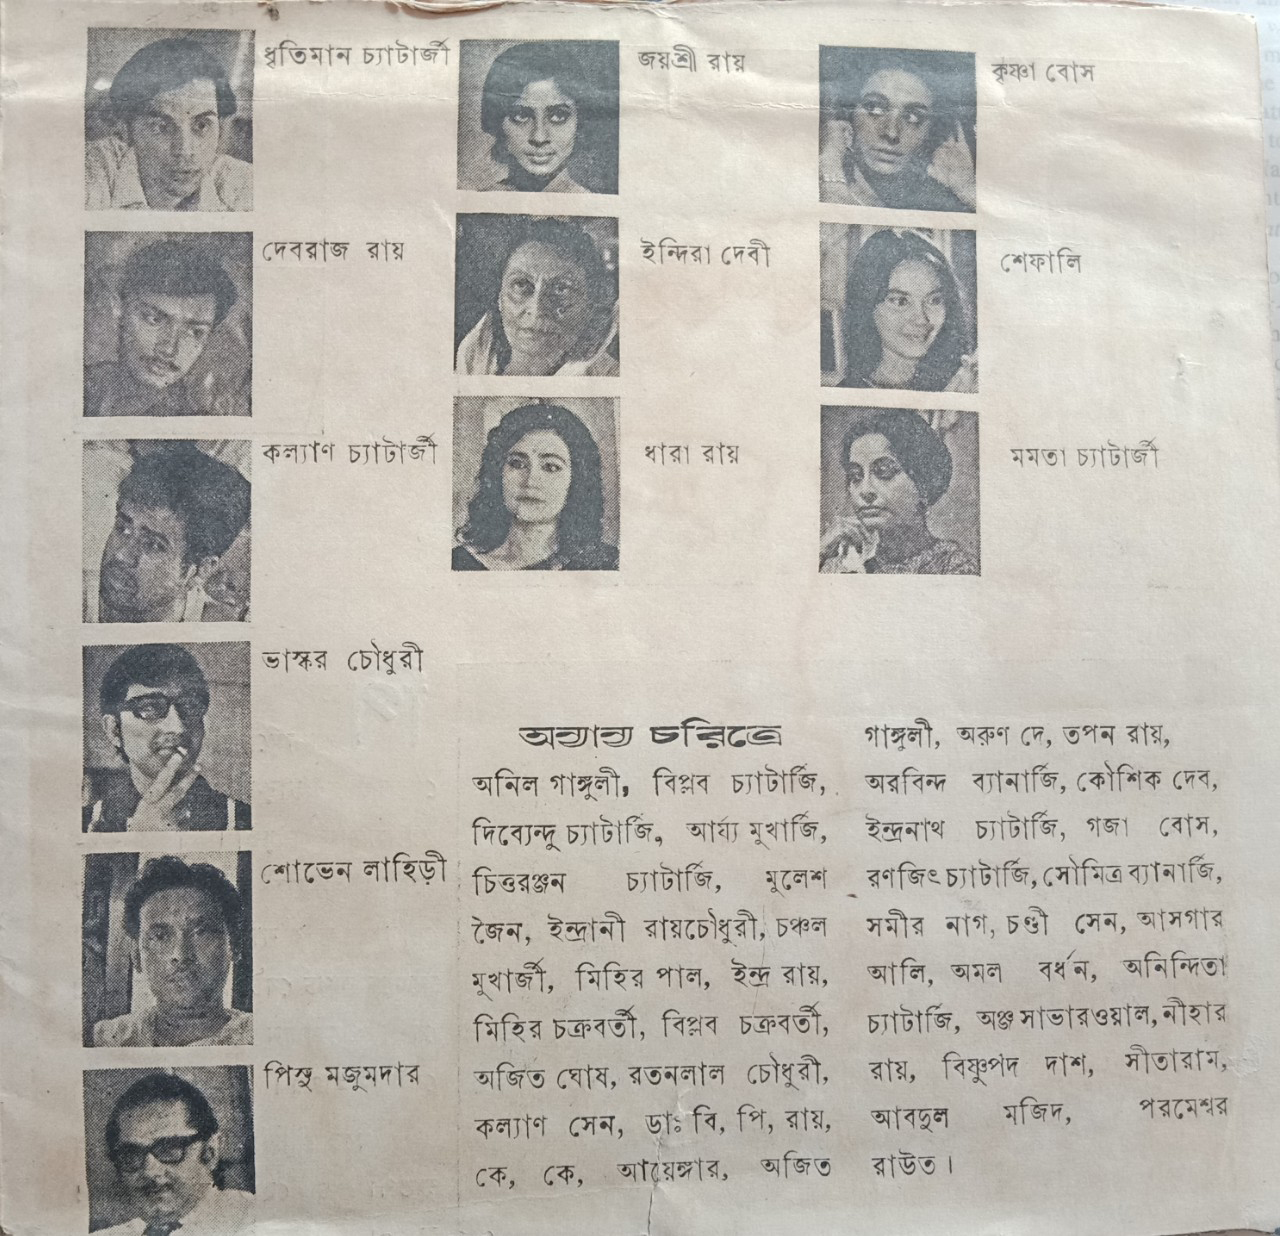 ধৃতিমান চ্যাটার্জী
জয়শ্রী রায়
কৃষ্ণা বোস
দেবরাজ রায়
ইন্দিরা দেবী
শেফালি
কল্যাণ চ্যাটার্জী
ধারা রায়
মমতা চ্যাটার্জী
ভাস্কর চৌধুরী
শোভেন লাহিড়ী
পিন্টু মজুমদার
অন্যান্য চরিত্রে
অনিল গাঙ্গুলী, বিপ্লব চ্যাটার্জি,
দিব্যেন্দু চ্যাটার্জি, আর্য্য মুখার্জি,
চিত্তরঞ্জন চ্যাটার্জি, মূলেশ
জৈন, ইন্দ্রানী রায়চৌধুরী, চঞ্চল
মুখার্জী, মিহির পাল, ইন্দ্র রায়,
মিহির চক্রবর্তী, বিপ্লব চক্রবর্তী,
অজিত ঘোষ, রতনলাল চৌধুরী,
কল্যাণ সেন, ডাঃ বি, পি, রায়,
কে, কে, আয়েঙ্গার, অজিত
গাঙ্গুলী, অরুণ দে, তপন রায়,
অরবিন্দ ব্যানার্জি, কৌশিক দেব,
ইন্দ্রনাথ চ্যাটার্জি, গজা বোস,
রণজিৎ চ্যাটার্জি, সৌমিত্র ব্যানার্জি,
সমীর নাগ, চণ্ডী সেন, আসগার
আলি, অমল বর্ধন, অনিন্দিতা
চ্যাটার্জি, অঞ্জু সাভারওয়াল, নীহার
রায়, বিষ্ণুপদ দাশ, সীতারাম,
আবদুল মজিদ, পরমেশ্বর
রাউত।